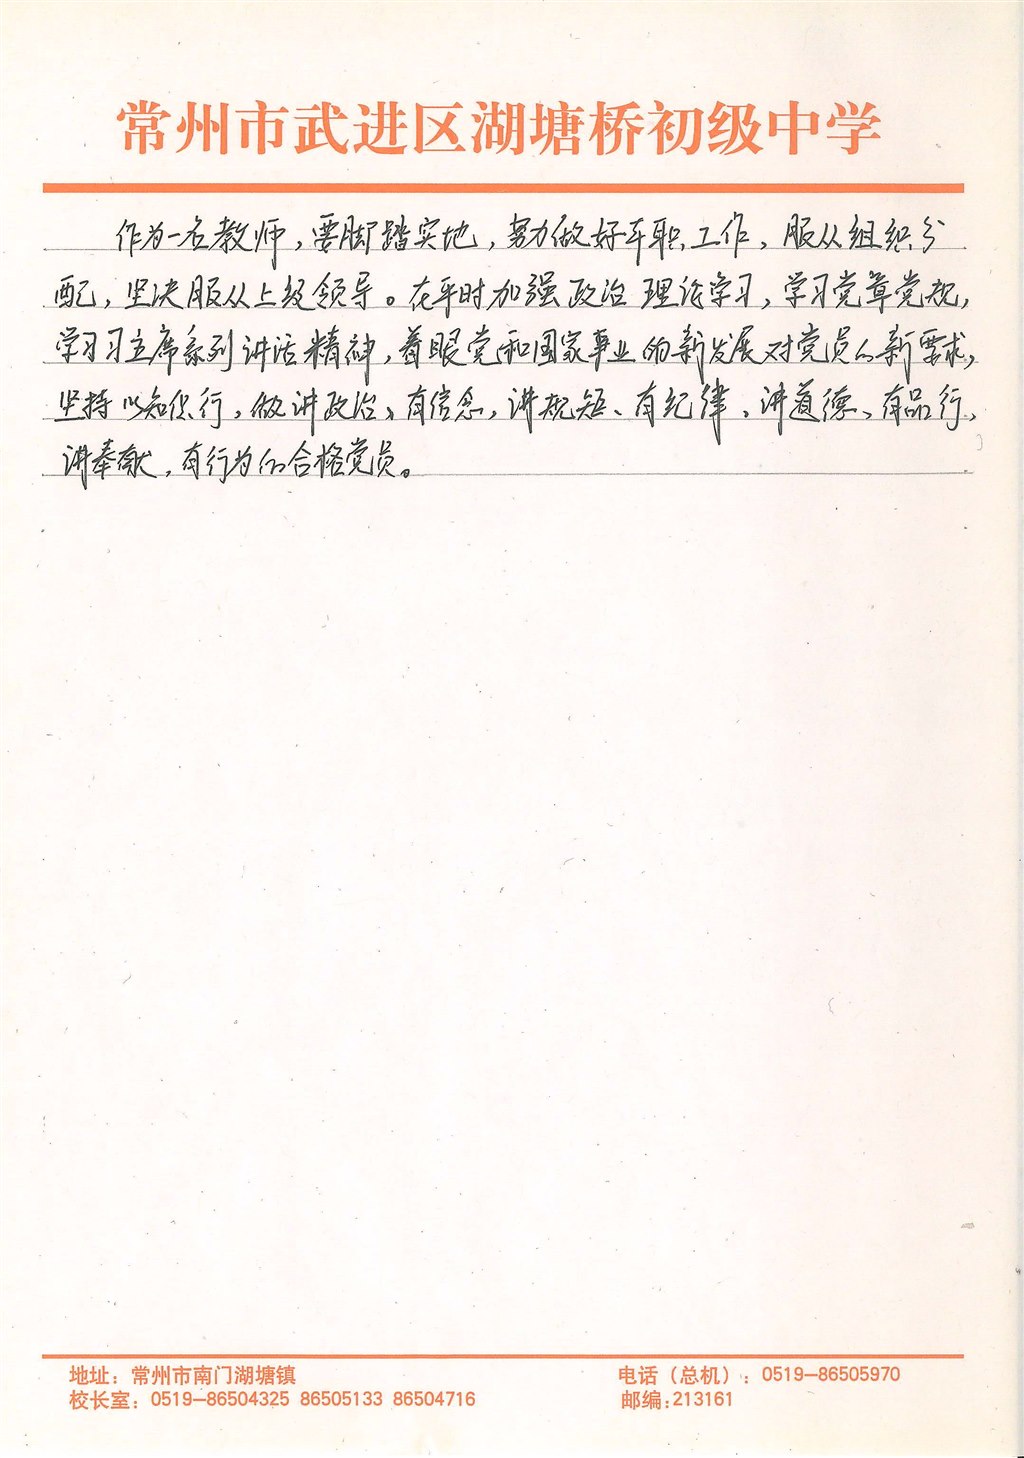 常州市武进区湖塘桥初级中学
作为一名教师，要脚踏实地，努力做好本职工作，服从组织分
配，坚决服从上级领导。在平时加强政治理论学习，学习党章党规，
学习习主席系列讲话精神，着眼党和国家事业的新发展对党员的新要求，
坚持以知促行，做讲政治、有信念，讲规矩、有纪律，讲道德、有品行，
讲奉献，有行为的合格党员。
地址：常州市南门湖塘镇 电话（总机）：0519—86505970
校长室：0519—86504325 86505133 86504716 邮编:213161